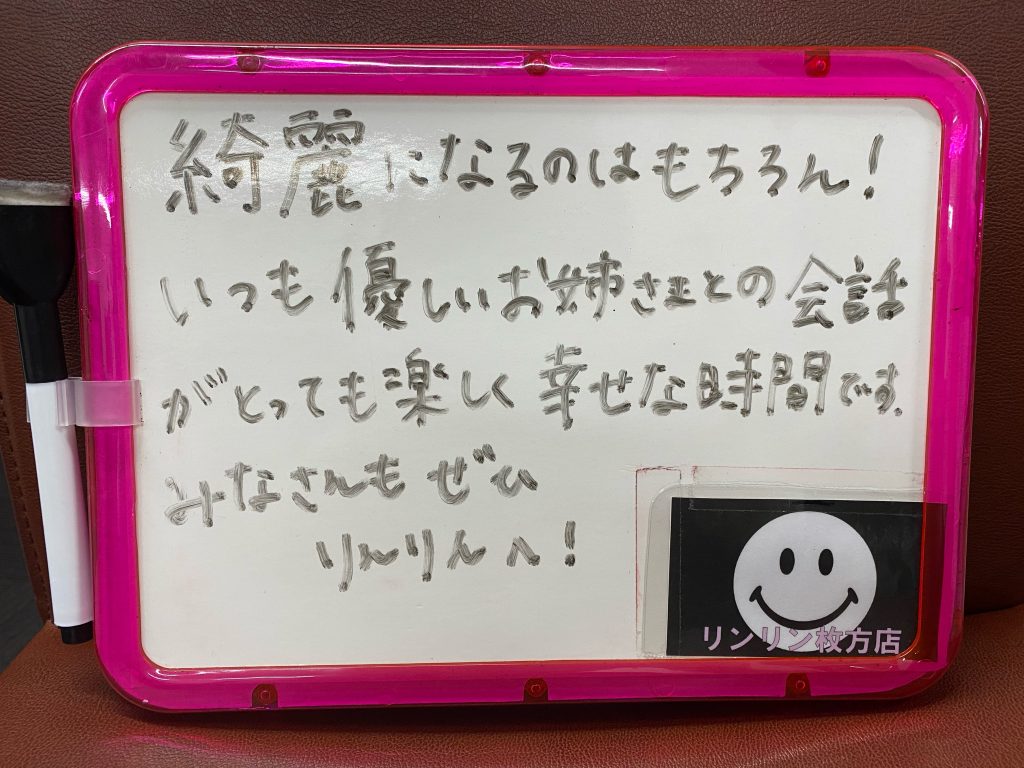 綺麗になるのはもちろん!
いつも優しいお姉さまとの会話
がとっても楽しく幸せな時間です。
みなさんもぜひ
りんりんへ!
リンリン枚方店